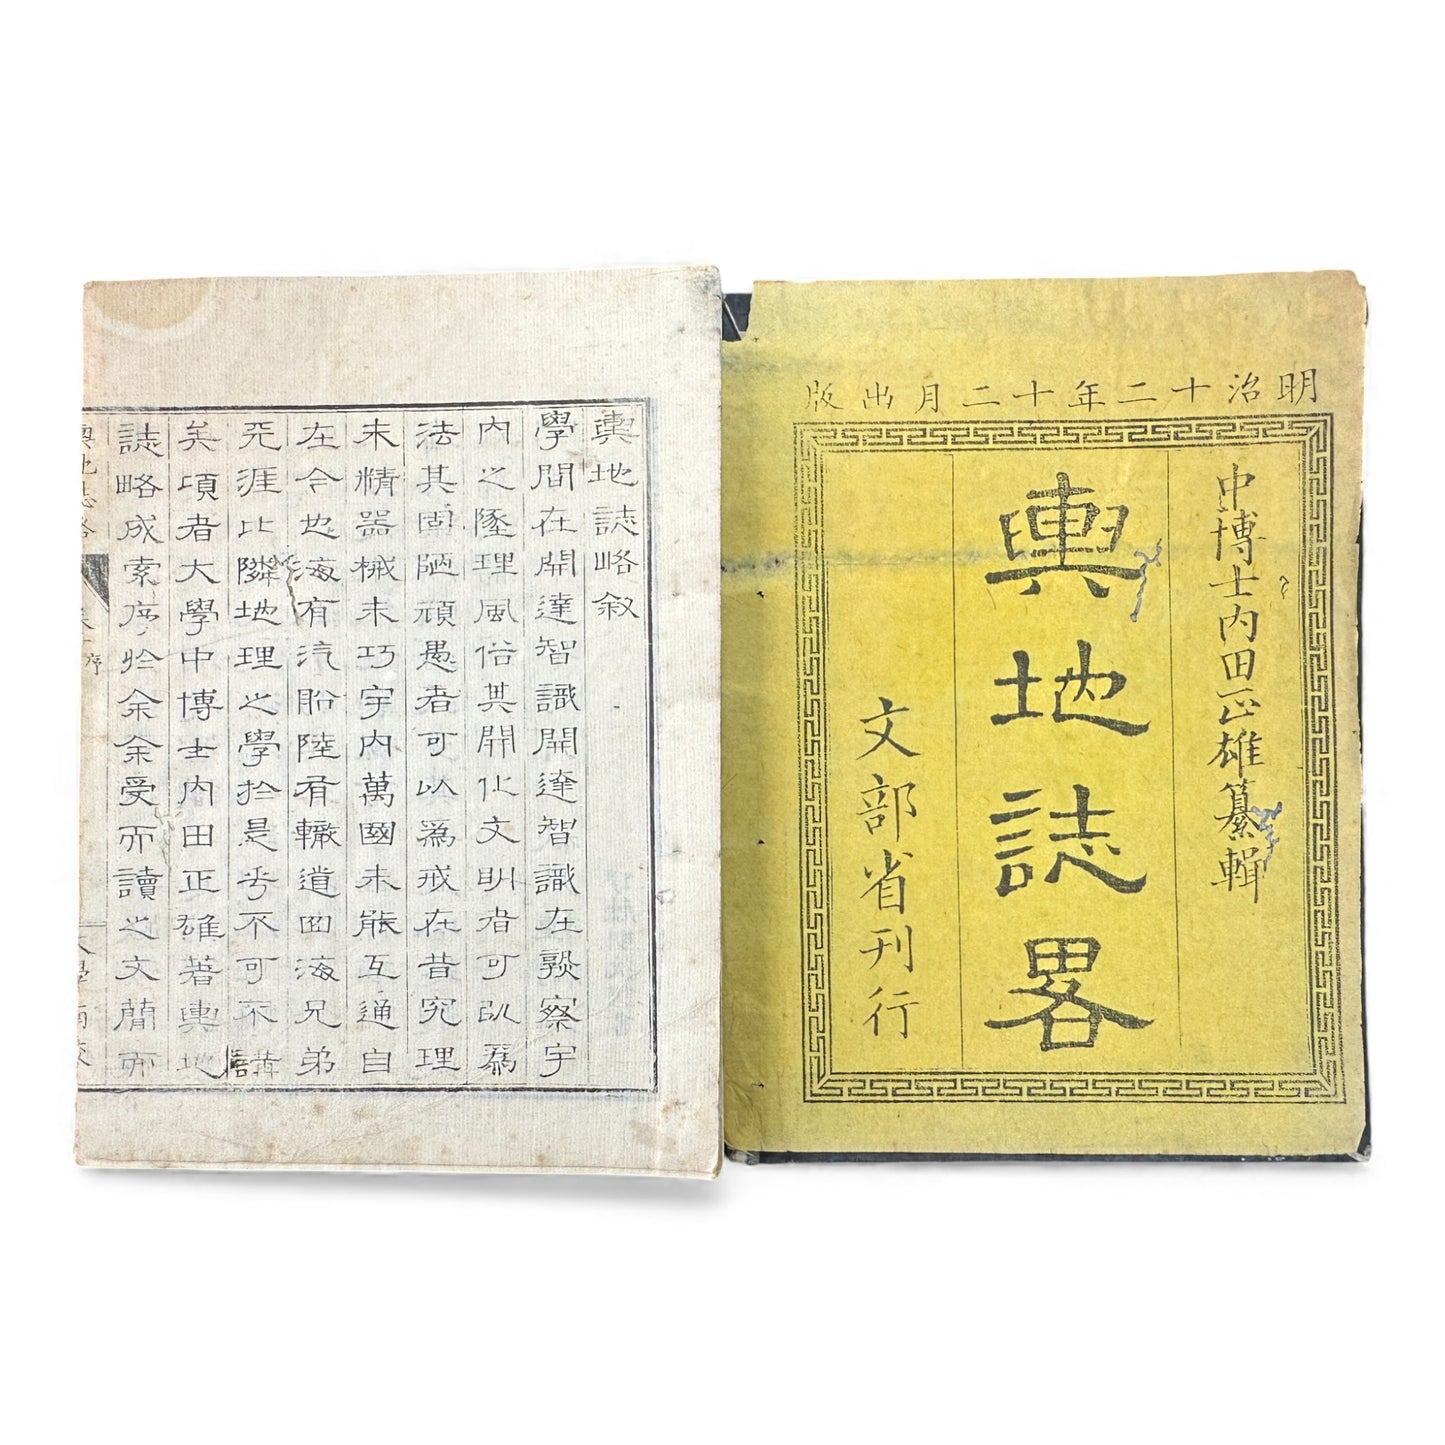 明治十二年十二月出版
中博士内田正雄纂輯
輿地誌畧
文部省刊行
輿地誌略叙
學問在開達智識開達智識在熟察宇
内之墜理風俗其開化文明者可以爲
法其固陋頑愚者可以爲戒在昔究理
未精器械未巧宇内萬國未能互通自
在今也海有汽船陸有轍道四海兄弟
無涯比隣地理之學於是乎不可不講
矣項者大學中博士内田正雄著輿地
誌略成索序於余余受而讀之文簡而
輿地誌略
序
大學南校